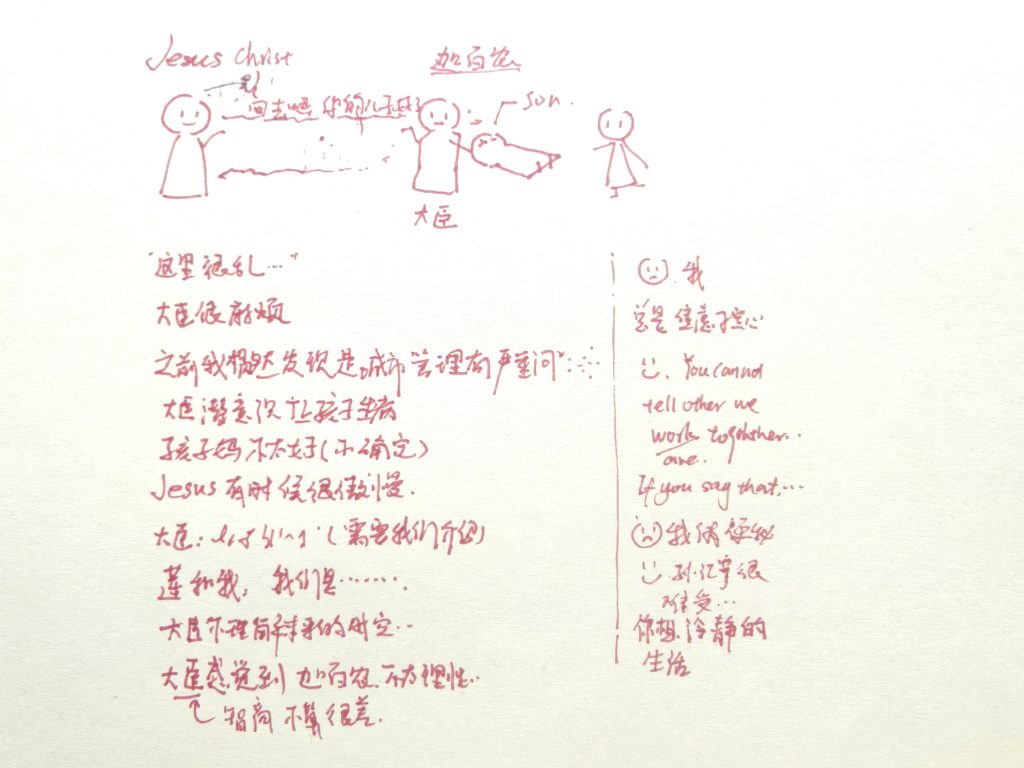 Jesus Christ
加百农
回去吧 你的儿子好了
son.
大臣
"这里很乱…"
大臣很麻烦
之前我偶然发现是城市管理有严重问
大臣潜意识让孩子生病
孩子妈不太好(不确定)
Jesus 有时候很傲慢.
大臣: (需要我们介绍)
莲和我, 我们是…….
大臣不理解未来的时空..
大臣感觉到 加百农.不太理性..
智商 不算很差.
我
总是 空心
You cannot
tell other we
work togehther..
are.
If you say that,…
我俩
孙红宇很
难受…
你想 冷静的
生活